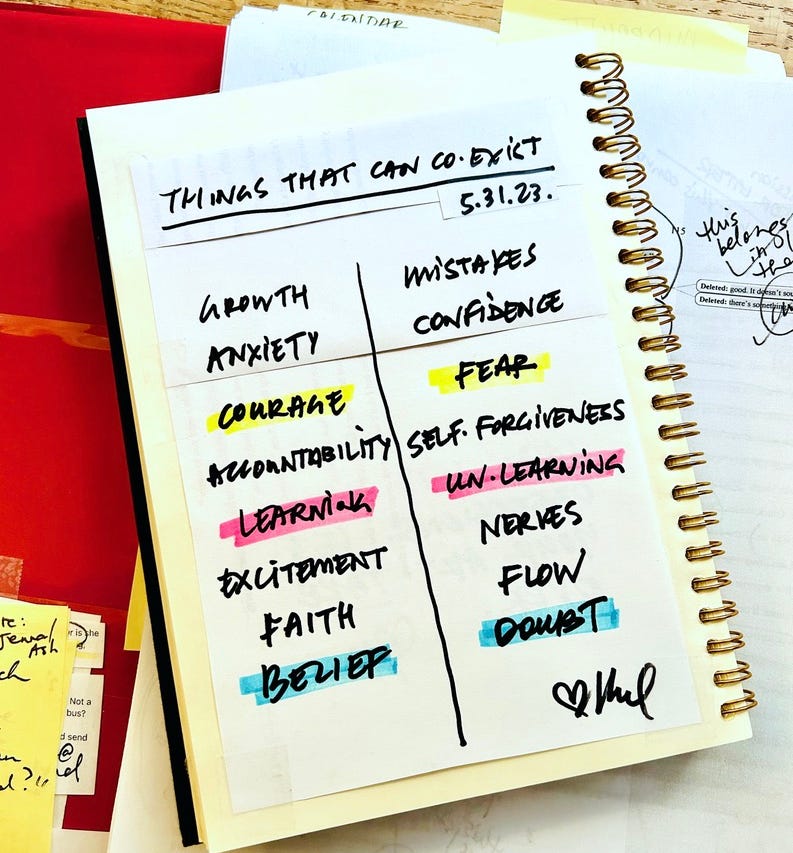 CALENDAR
THINGS THAT CAN CO·EXIST
5.31.23.
GROWTH
ANXIETY
COURAGE
ACCOUNTABILITY
LEARNING
EXCITEMENT
FAITH
BELIEF
MISTAKES
CONFIDENCE
FEAR
SELF·FORGIVENESS
UN·LEARNING
NERVES
FLOW
DOUBT
this
belongs
in
the
115
Deleted: good. It doesn't sou
Deleted: there's something
re:
Ash
r is she
Not a
bus?
d send
@